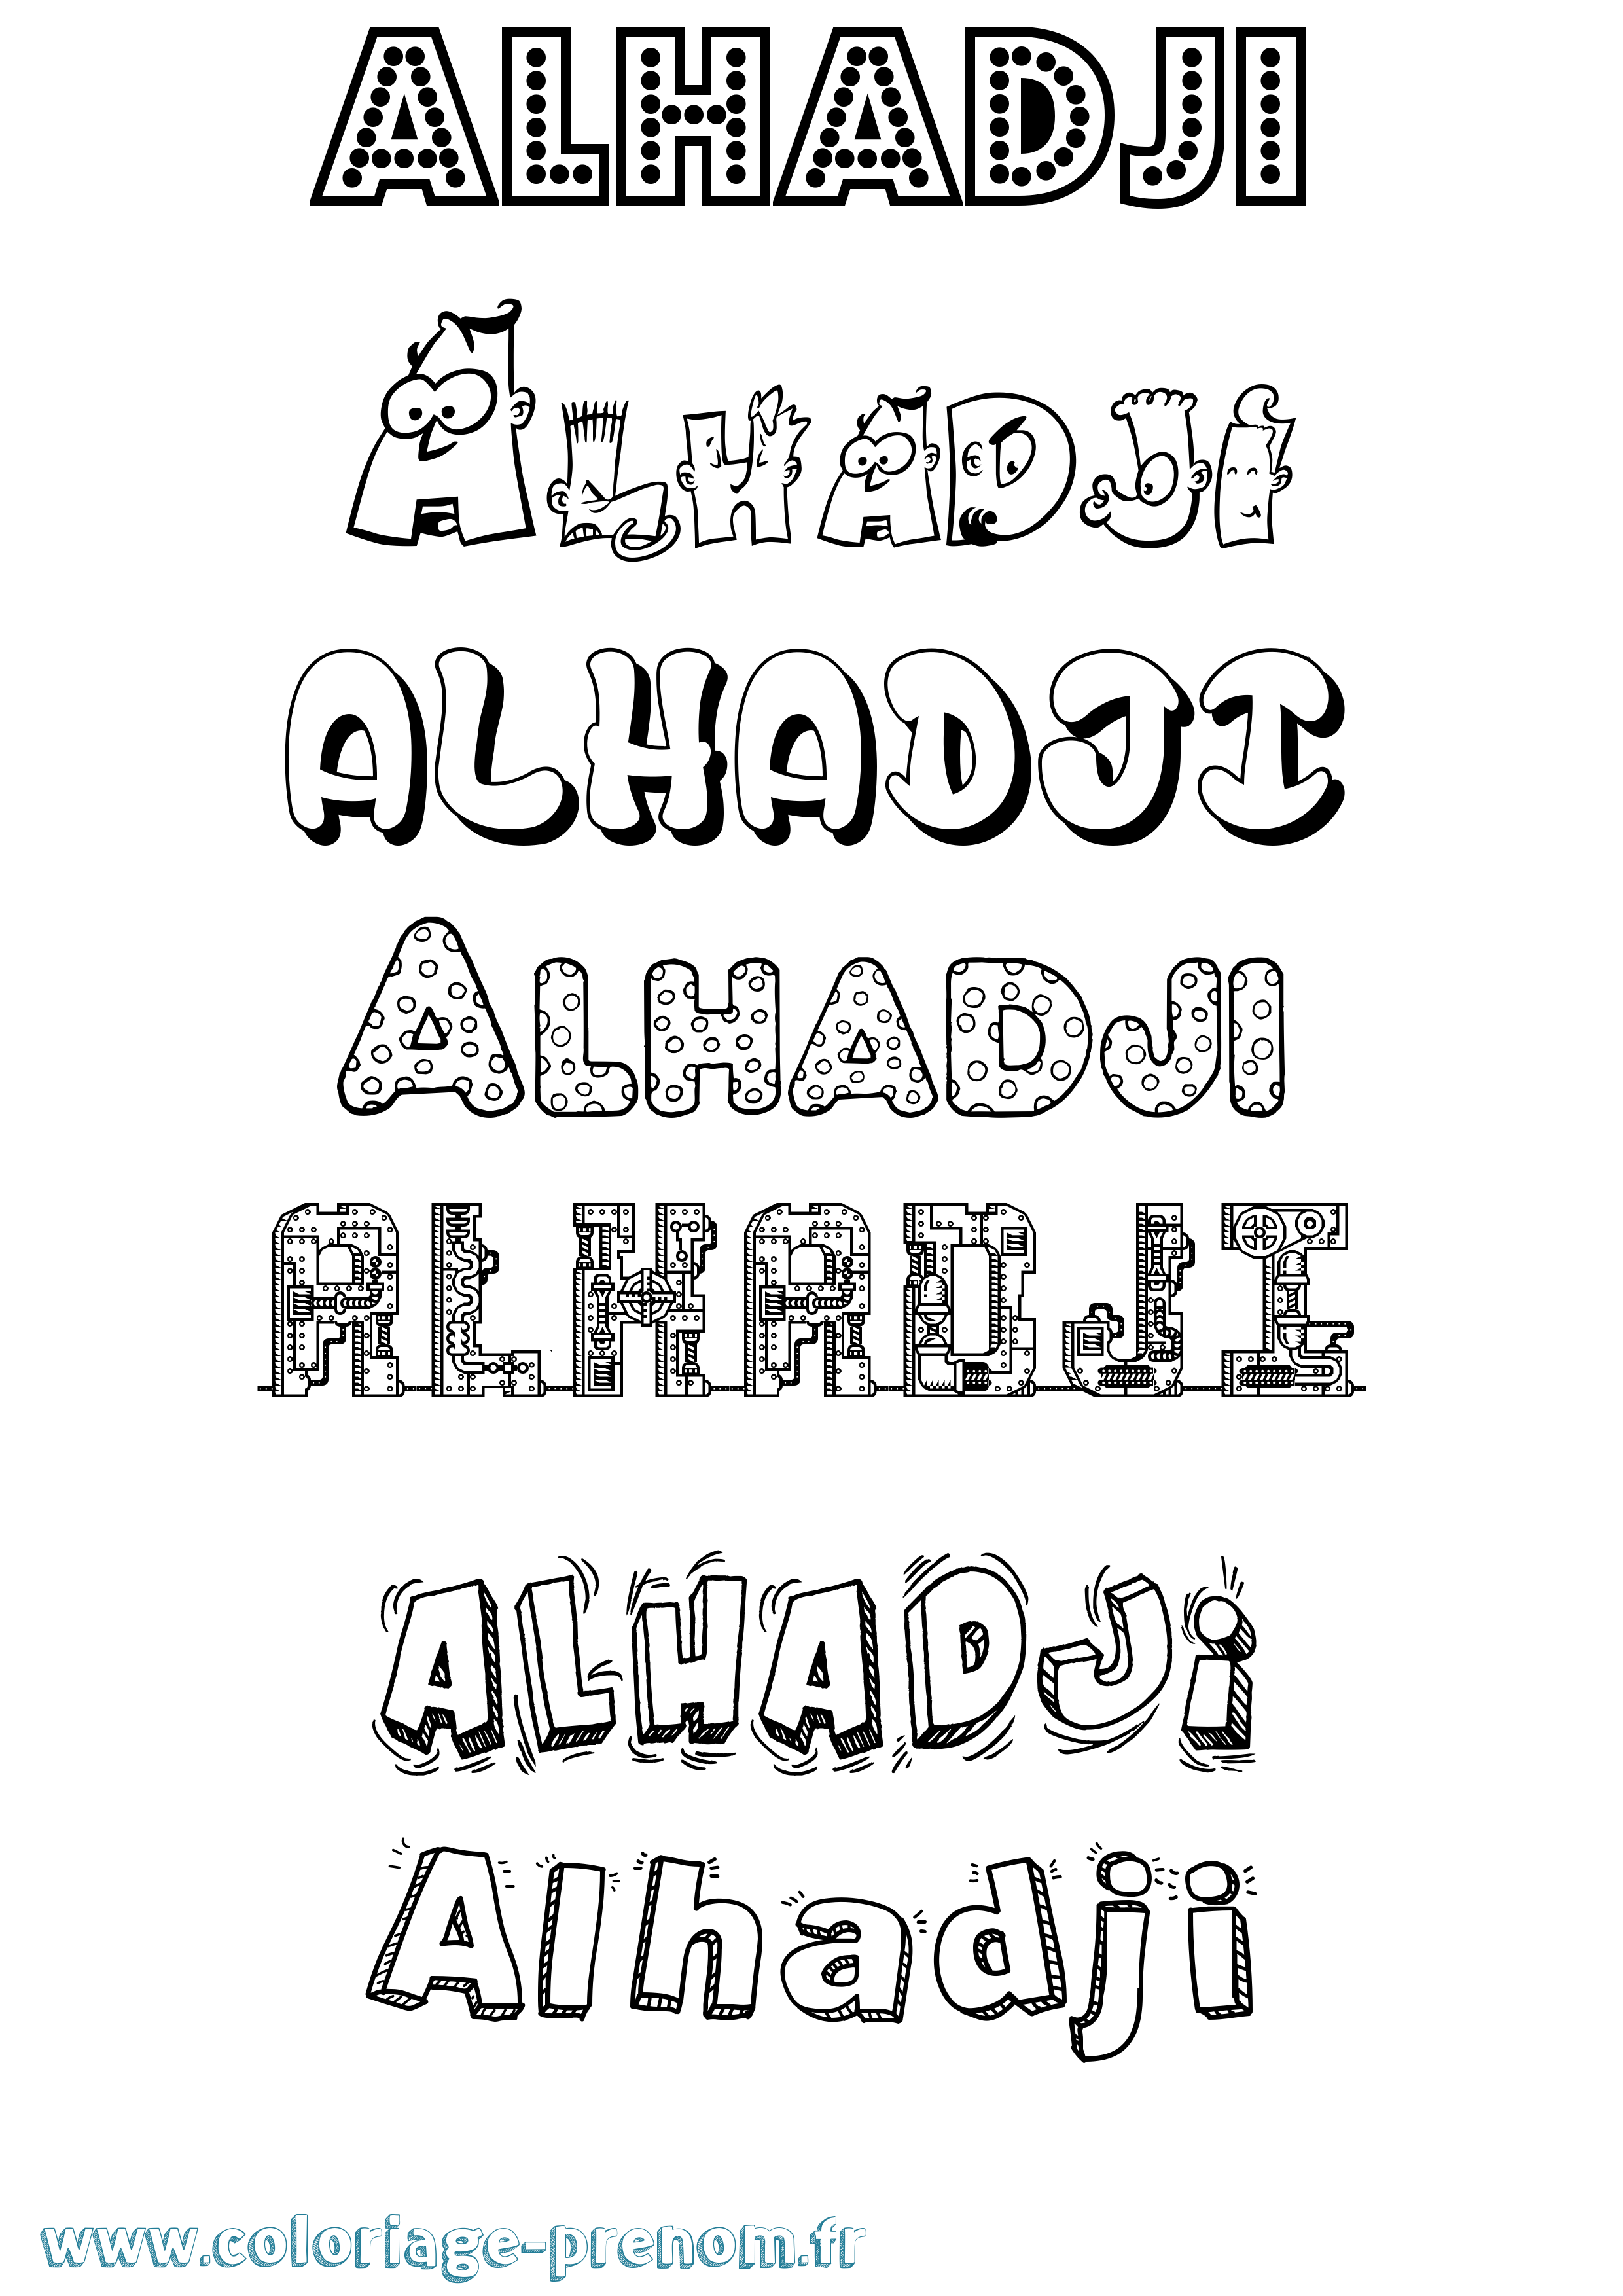 ALHADJI
ALHADJi
ALHADJI
ALHADJI
ALHADJI
ALHADJi
Alhadji
www.coloriage-prenom.fr